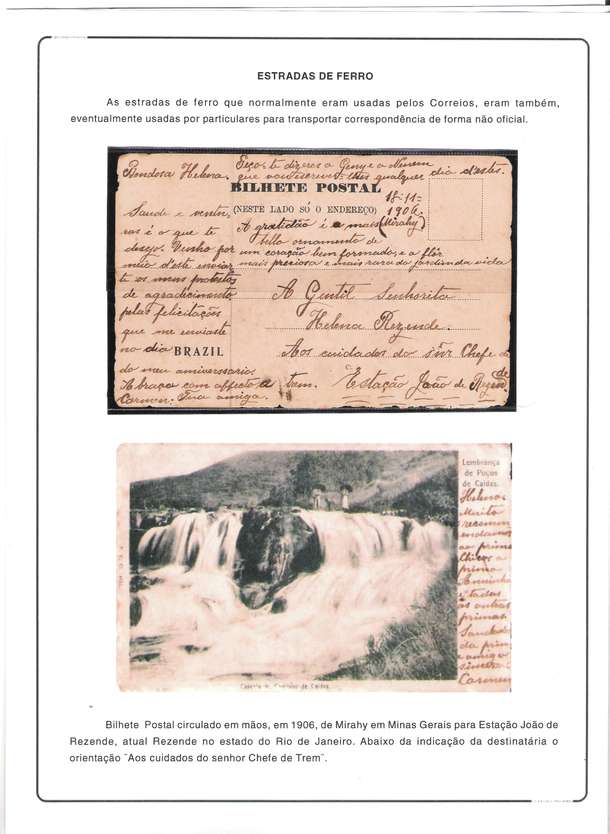 ESTRADAS DE FERRO
As estradas de ferro que normalmente eram usadas pelos Correios, eram também,
eventualmente usadas por particulares para transportar correspondência de forma não oficial.
Bondosa Helena,
Peço-te dizeres a Geny e a
que vou escrever-lhes qualquer dia d'estes.
BILHETE POSTAL
(NESTE LADO SÓ O ENDEREÇO)
18-11-
1906.
(Mirahy)
Saude e ventu-
ras é o que te
desejo. Venho por
meio d'este enviar
te os meus protestos
de agradecimento
pelas felicitações
que me enviaste
no dia
do meu anniversario.
Abraça com affecto, a
Carmen. Tua amiga.
A gratidão é o mais
bello ornamento de
um coração bem formado, e a flôr
mais preciosa e mais rara do jardim da vida
BRAZIL
A Gentil Senhorita
Helena Rezende.
Aos cuidados do snr Chefe de
trem. Estação João de Rezende
Lembrança
de Poços
de Caldas.
Helena
Muito
recommen
endamos
ao primo
Chico, a
prima
e todas
as outras
primas
Saudade
da prim
e amiga
sincera
Carmen
de Caldas.
Bilhete Postal circulado em mãos, em 1906, de Mirahy em Minas Gerais para Estação João de
Rezende, atual Rezende no estado do Rio de Janeiro. Abaixo da indicação da destinatária o
orientação ¨Aos cuidados do senhor Chefe de Trem¨.